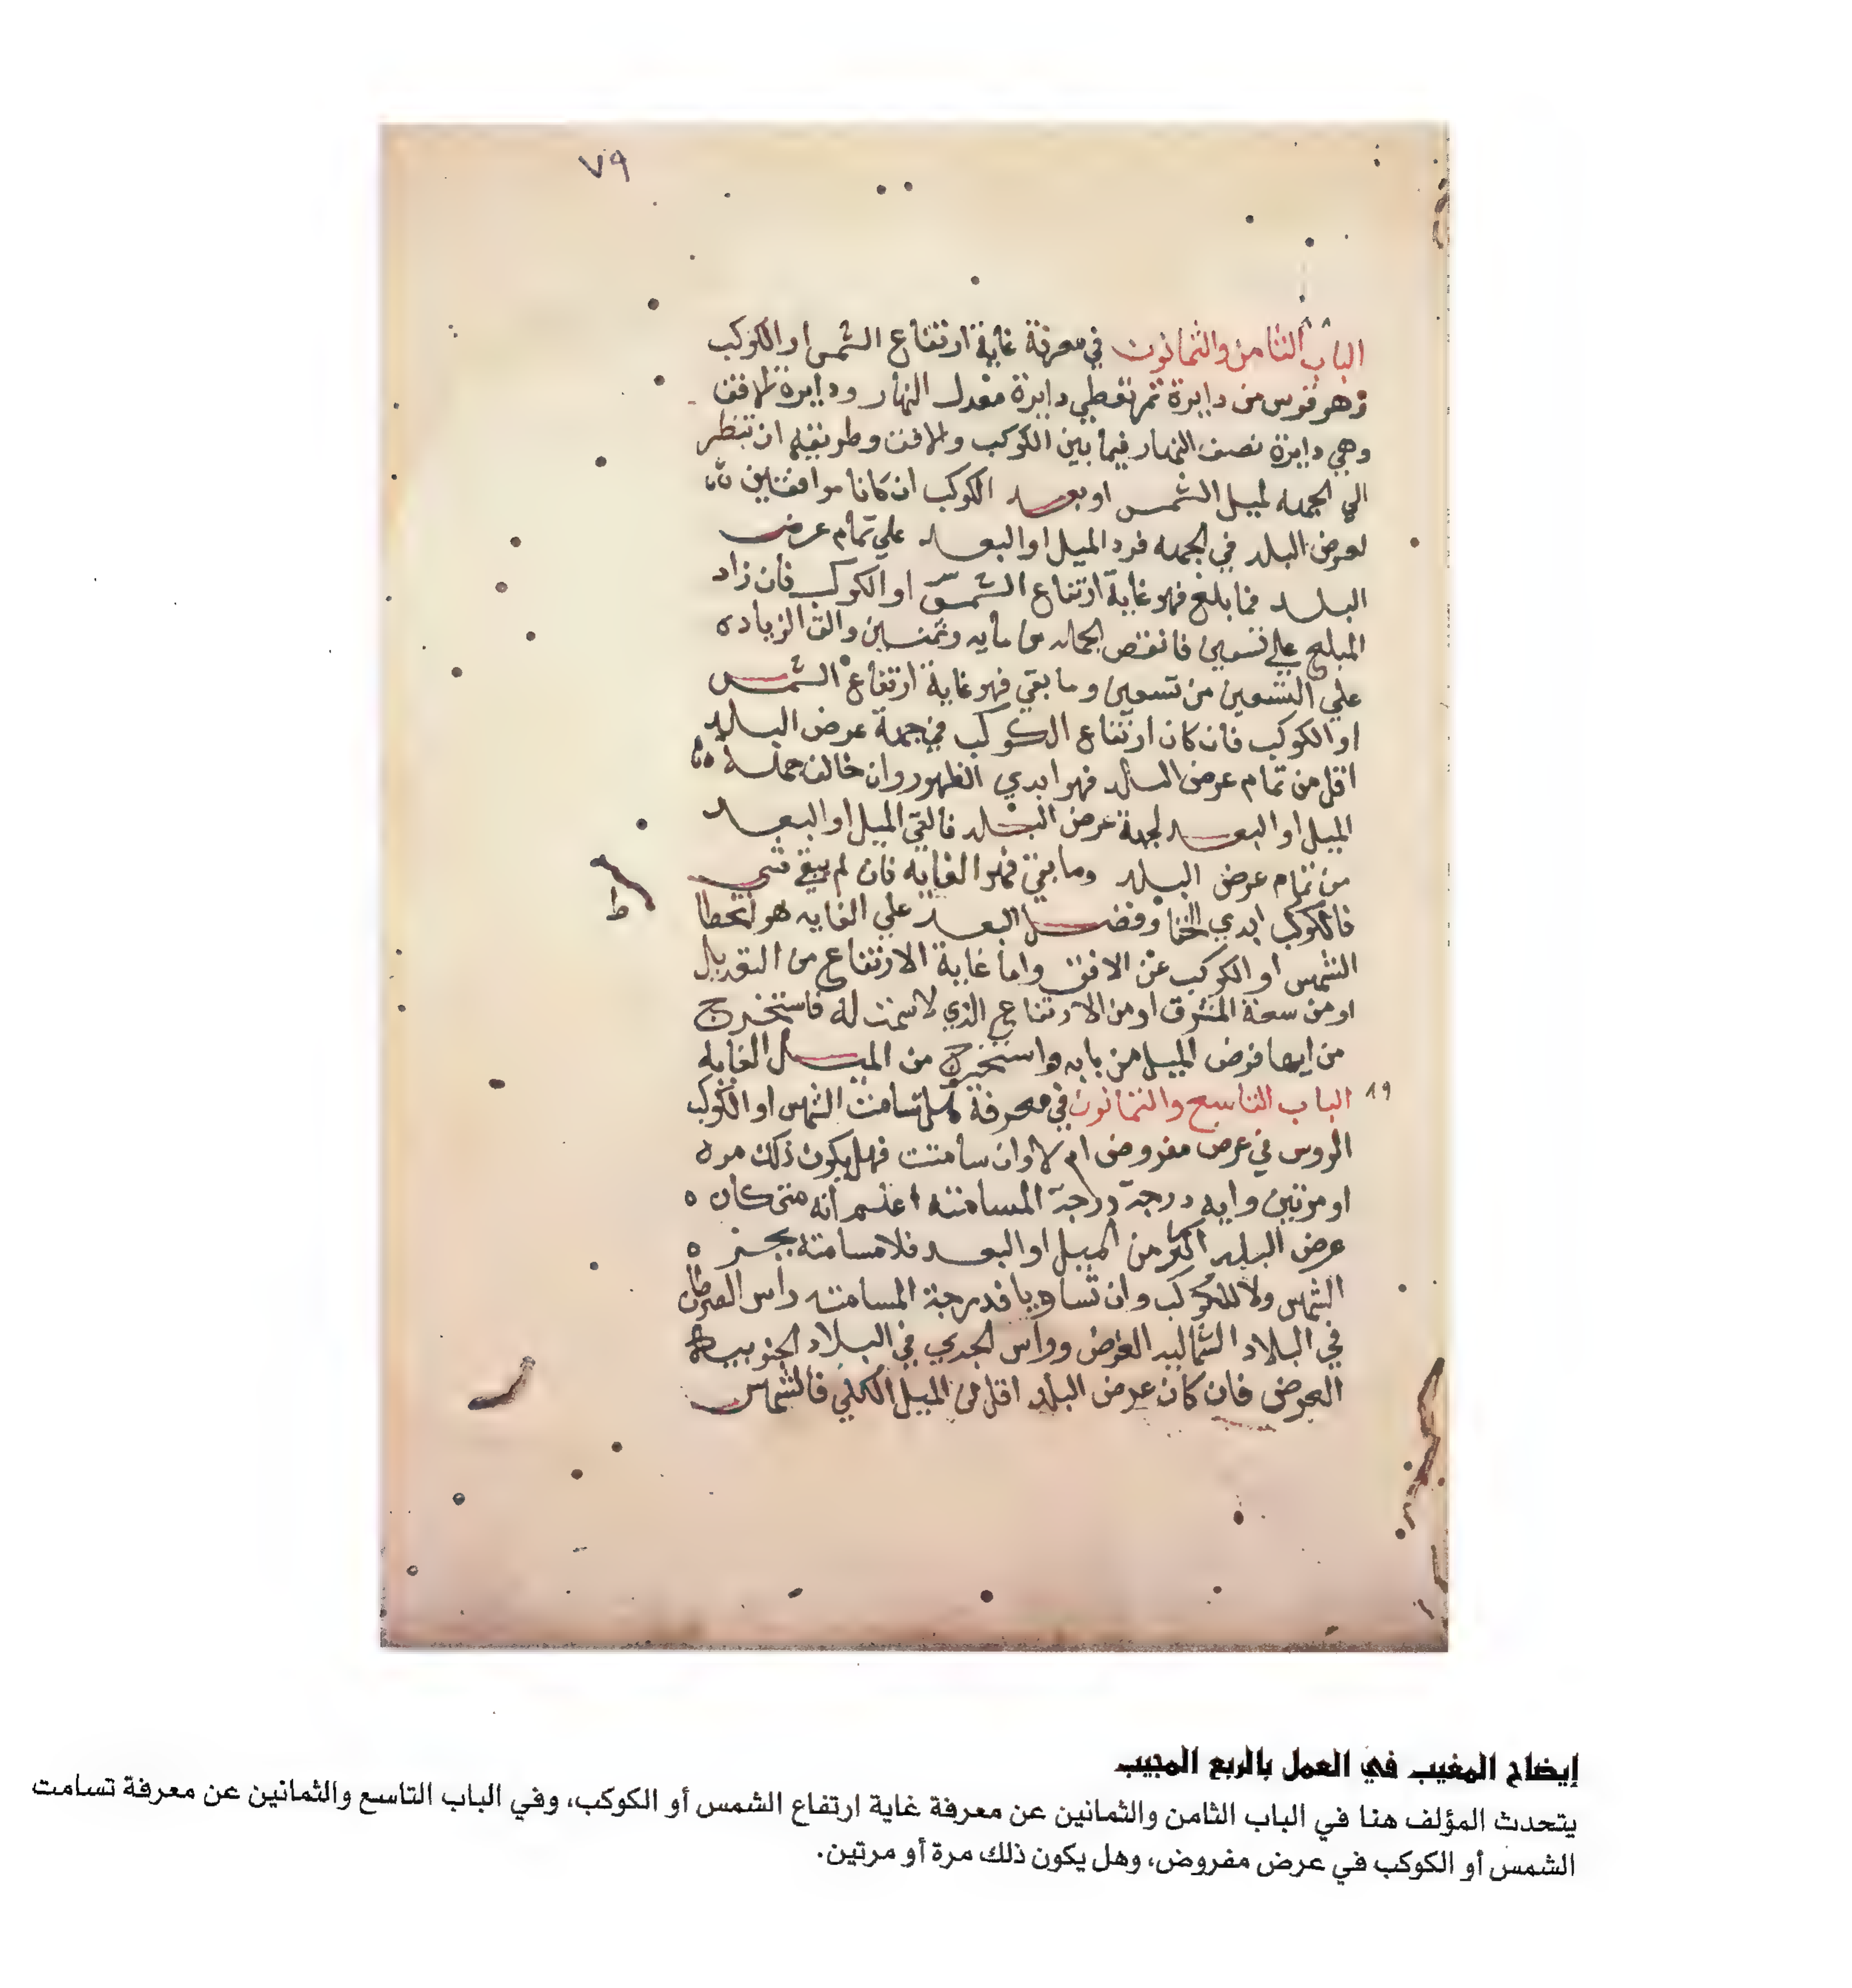 ٧٩
٨٨
الباب الثامن والثمانون في معرفة غاية ارتفاع الشمس او الكوكب
وهو قوس من دايرة تمر بقطبي دايرة معدل النهار ودايرة الافق
وهي دايرة نصف النهار فيما بين الكوكب والافق وطريقه ان تنظر
الي الجهه لميل الشمس او بعد الكوكب ان كانا موافقين
لعرض البلد في الجهه فزد الميل او البعد علي تمام عرض
البلد فما بلغ فهو غاية ارتفاع الشمس او الكوكب فان زاد
المبلغ علي تسعين فانقص الجمله من مايه وثمنين والق الزياده
علي التسعين من تسعين وما بقي فهو غاية ارتفاع الشمس
او الكوكب فان كان ارتفاع الكوكب في جهة عرض البلد
اقل من تمام عرض البلد فهو ابدي الظهور وان خالف جهة
الميل او البعد لجهة عرض البلد فالقي الميل او البعد
من تمام عرض البلد وما بقي فهو الغايه فان لم يبقي شي
فالكوكب ابدي الخفا وفضل البعد علي الغايه هو انحطا
ط
الشمس او الكوكب عن الافق واما غاية الارتفاع من التعديل
او من سعة المشرق او من الارتفاع الذي لا سمت له فاستخرج
من ايها فرض الميل من بابه واستخرج من الميل الغايه
٨٩
الباب التاسع والثمانون في معرفة هل تسامت الشمس او الكوكب
الروس في عرض مفروض ام لا وان سامتت فهل يكون ذلك مره
او مرتين وايه درجة درجة المسامته اعلم انه متي كان
عرض البلد اكثر من الميل او البعد فلا مسامتة
الشمس ولا للكوكب وان تساويا فدرجة المسامته راس السرطان
في البلاد الشماليه العرض وراس الجدي في البلاد الجنوبيه
العرض فان كان عرض البلد اقل من الميل الكلي فالشمس
إيضاح المغيب في العمل بالربع المجيب
يتحدث المؤلف هنا في الباب الثامن والثمانين عن معرفة غاية ارتفاع الشمس أو الكوكب، وفي الباب التاسع والثمانين عن معرفة تسامت
الشمس أو الكوكب في عرض مفروض، وهل يكون ذلك مرة أو مرتين.